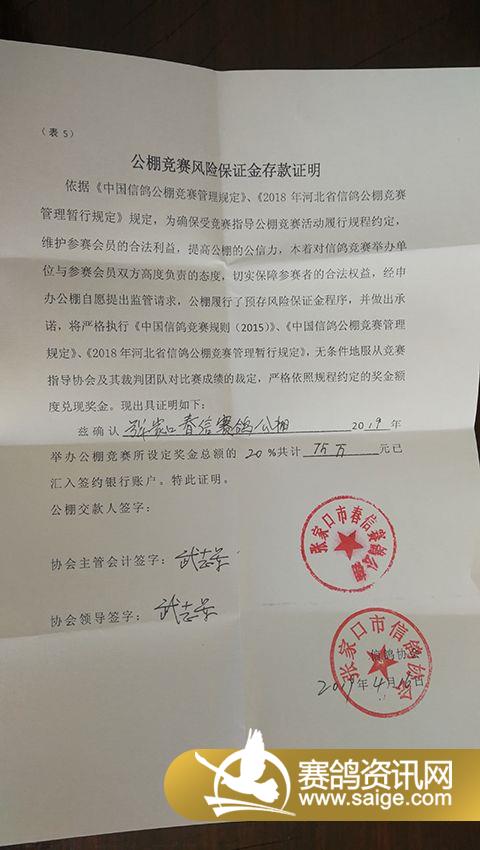 （表 5）
公棚竞赛风险保证金存款证明
依据《中国信鸽公棚竞赛管理规定》、《2018 年河北省信鸽公棚竞赛
管理暂行规定》规定，为确保受竞赛指导公棚竞赛活动履行规程约定，
维护参赛会员的合法利益，提高公棚的公信力，本着对信鸽竞赛举办单
位与参赛会员双方高度负责的态度，切实保障参赛者的合法权益，经申
办公棚自愿提出监管请求，公棚履行了预存风险保证金程序，并做出承
诺，将严格执行《中国信鸽竞赛规则（2015）》、《中国信鸽公棚竞赛管理
规定》、《2018 年河北省信鸽公棚竞赛管理暂行规定》，无条件地服从竞赛
指导协会及其裁判团队对比赛成绩的裁定，严格依照规程约定的奖金额
度兑现奖金。现出具证明如下：
兹确认 张家口春信赛鸽公棚 2019 年
举办公棚竞赛所设定奖金总额的 20 %共计 75万 元已
汇入签约银行账户。特此证明。
公棚交款人签字：
张家口市春信赛鸽公棚
协会主管会计签字： 武志荣
协会领导签字： 武志荣
张家口市信鸽协会
信鸽协会
2019 年 4 月 日
赛鸽资讯网
www.saige.com